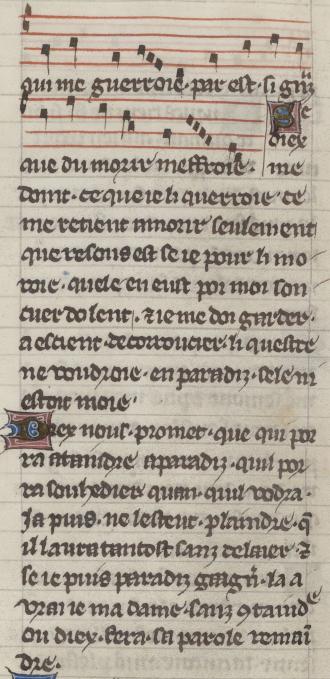 qui me guerroie · par est · si grãz
Se
diex
que du morir meffroie · me
doint · ce que ie li querroie · ce
me retient amorir seulement
que resons est se ie pour li mo
roie · quele en eust por moi son
cuer dolent · ⁊ ie me doi garder ·
a escient · de corroucier · li questre
ne voudroie · en paradiz · sele ni
estoit moie ·
Diex nous · promet · que qui por
ra ataindre a paradiz · quil por
ra souhedier quan · quil vodra ·
Ja puis · ne lesteut · plaindre · q̃
il laura tantost sanz delaier · ⁊
se ie puis paradiz gaign̄ · la a
vrai ie ma dame · sanz ꝯtainde
ou diex · fera · sa parole remai
dre ·